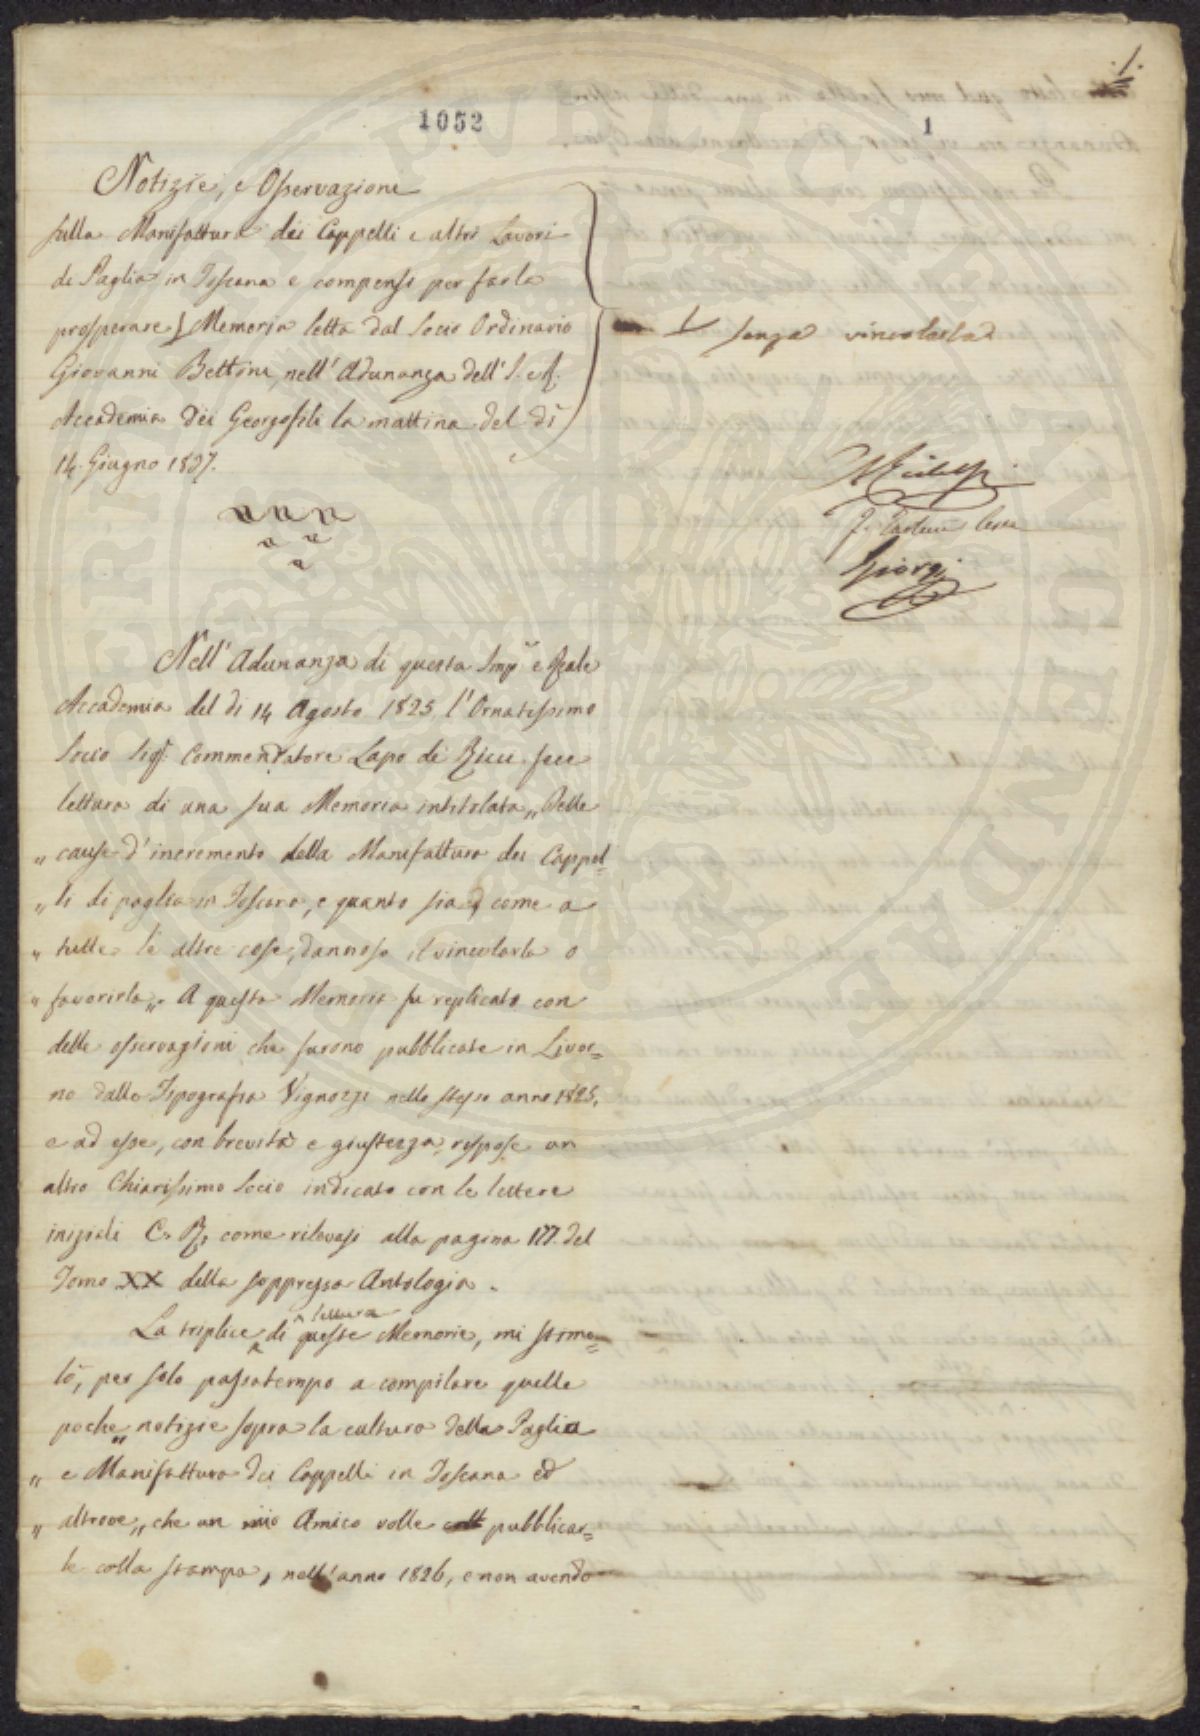 .1.
1052
1
Notizie, e Osservazioni
sulla Manifattura dei Cappelli e altri Lavori
di Paglia in Toscana e compensi per farla
prosperare Memoria letta dal Socio Ordinario
senza vincolarla
Giovanni Bettini, nell'Adunanza dell'I. e R.
Accademia dei Georgofili la mattina del dì
14. Giugno 1837.
Giorgi
Nell'Adunanza di questa Imp. e Reale
Accademia del dì 14 Agosto 1825, l'Ornatissimo
Socio Sig. Commendatore Lapo de Ricci fece
lettura di una sua Memoria intitolata „ Delle
„ cause d'incremento della Manifattura dei Cappel=
„ li di paglia in Toscana, e quanto sia, come a
„ tutte le altre cose, dannoso il vincolarla o
„ favorirla„. A questa Memoria fu replicato con
delle osservazioni che furono pubblicate in Livor=
no dalla Tipografia Vignozzi nello stesso anno 1825,
e ad esse, con brevità e giustezza, rispose un
altro Chiarissimo Socio indicato con le lettere
iniziali C. R., come rilevasi alla pagina 177. del
Tomo XX della soppressa Antologia.
La triplice lettura di queste Memorie, mi stimo=
lò, per solo passatempo a compilare quelle
poche „ notizie sopra la cultura della Paglia
„ e Manifattura dei Cappelli in Toscana ed
„ altrove„ che un mio Amico volle pubblicar=
le colla stampa, nell'anno 1826, e non avendo